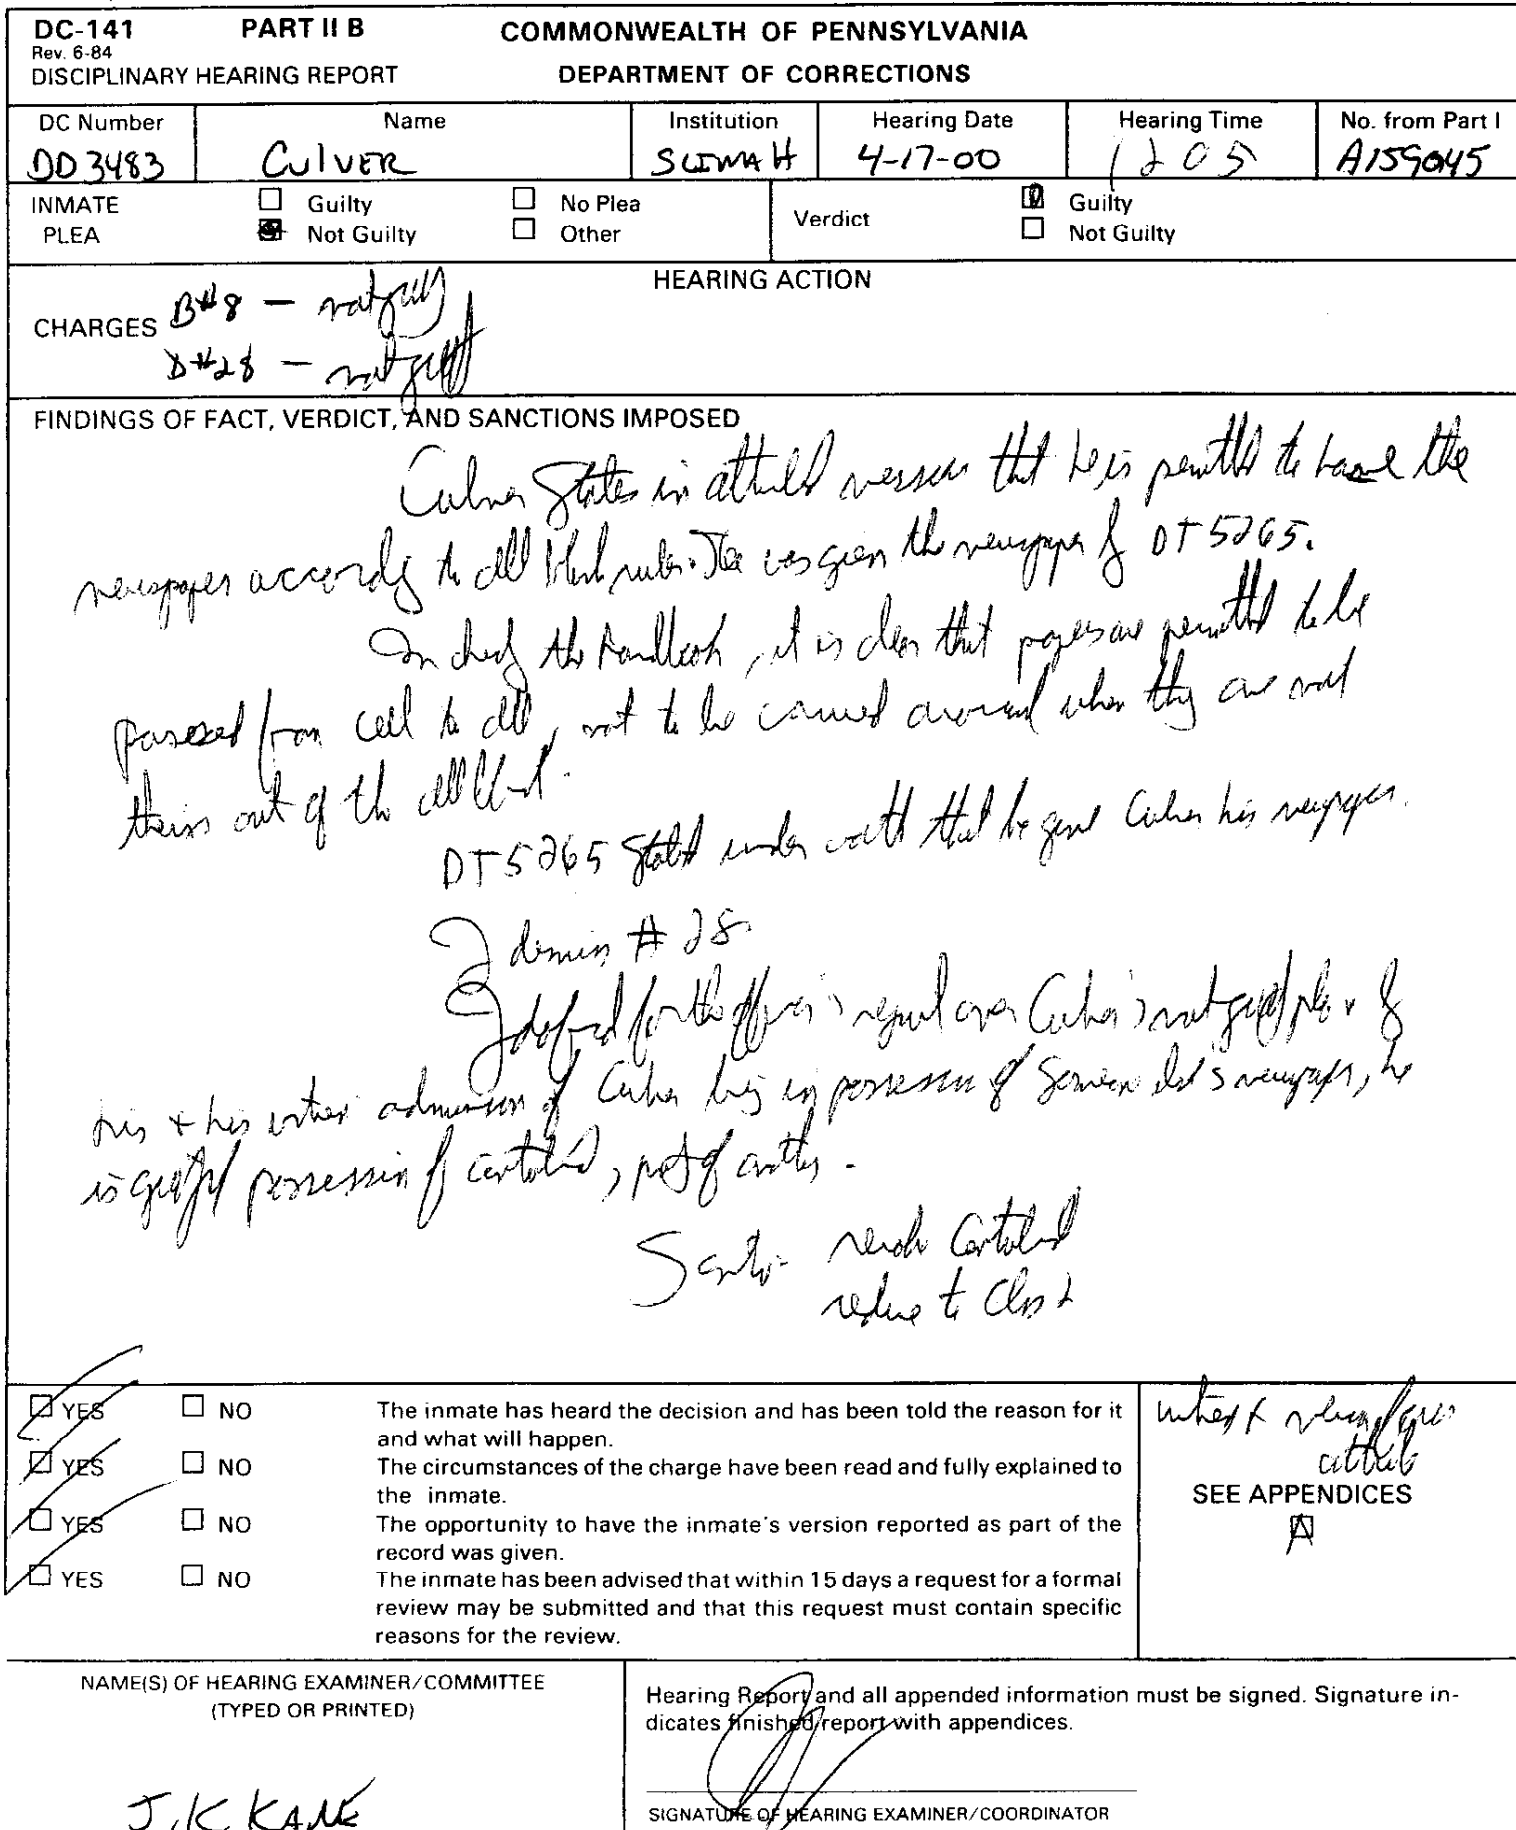 DC-141 PART II B COMMONWEALTH OF PENNSYLVANIA
Rev. 6-84
DISCIPLINARY HEARING REPORT DEPARTMENT OF CORRECTIONS
DC Number Name Institution Hearing Date Hearing Time No. from Part I
DD 3483 CUlVER 4-17-00 1205 A159045
INMATE PLEA
Guilty No Plea
Not Guilty Other
Verdict
Guilty
Not Guilty
HEARING ACTION
CHARGES B#8 — not guilty
B#28 — not guilty
FINDINGS OF FACT, VERDICT, AND SANCTIONS IMPOSED
Culver States in version that he is permitted to have the
newspaper according to cell block rules. He was given the newspaper by DT5265.
the handbook, it is clear that papers are permitted to be
passed from cell to cell, not to be carried around when they are not
theirs out of the cell block.
DT5265 Stated under oath that he gave Culver his newspaper.
I dismiss # 28.
I for the officer's report over Culver's not guilty plea & by
his & his witness' admission of Culver being in possession of someone else's newspaper, he
is guilty of possession of contraband, property of another.
Sanction contraband
reduce to Class 2
YES NO The inmate has heard the decision and has been told the reason for it
and what will happen.
YES NO The circumstances of the charge have been read and fully explained to
the inmate.
YES NO The opportunity to have the inmate's version reported as part of the
record was given.
YES NO The inmate has been advised that within 15 days a request for a formal
review may be submitted and that this request must contain specific
reasons for the review.
witness & version forms
attached
SEE APPENDICES
NAME(S) OF HEARING EXAMINER/COMMITTEE
(TYPED OR PRINTED)
J.K KANE
Hearing Report and all appended information must be signed. Signature in-
dicates finished report with appendices.
SIGNATURE OF HEARING EXAMINER/COORDINATOR